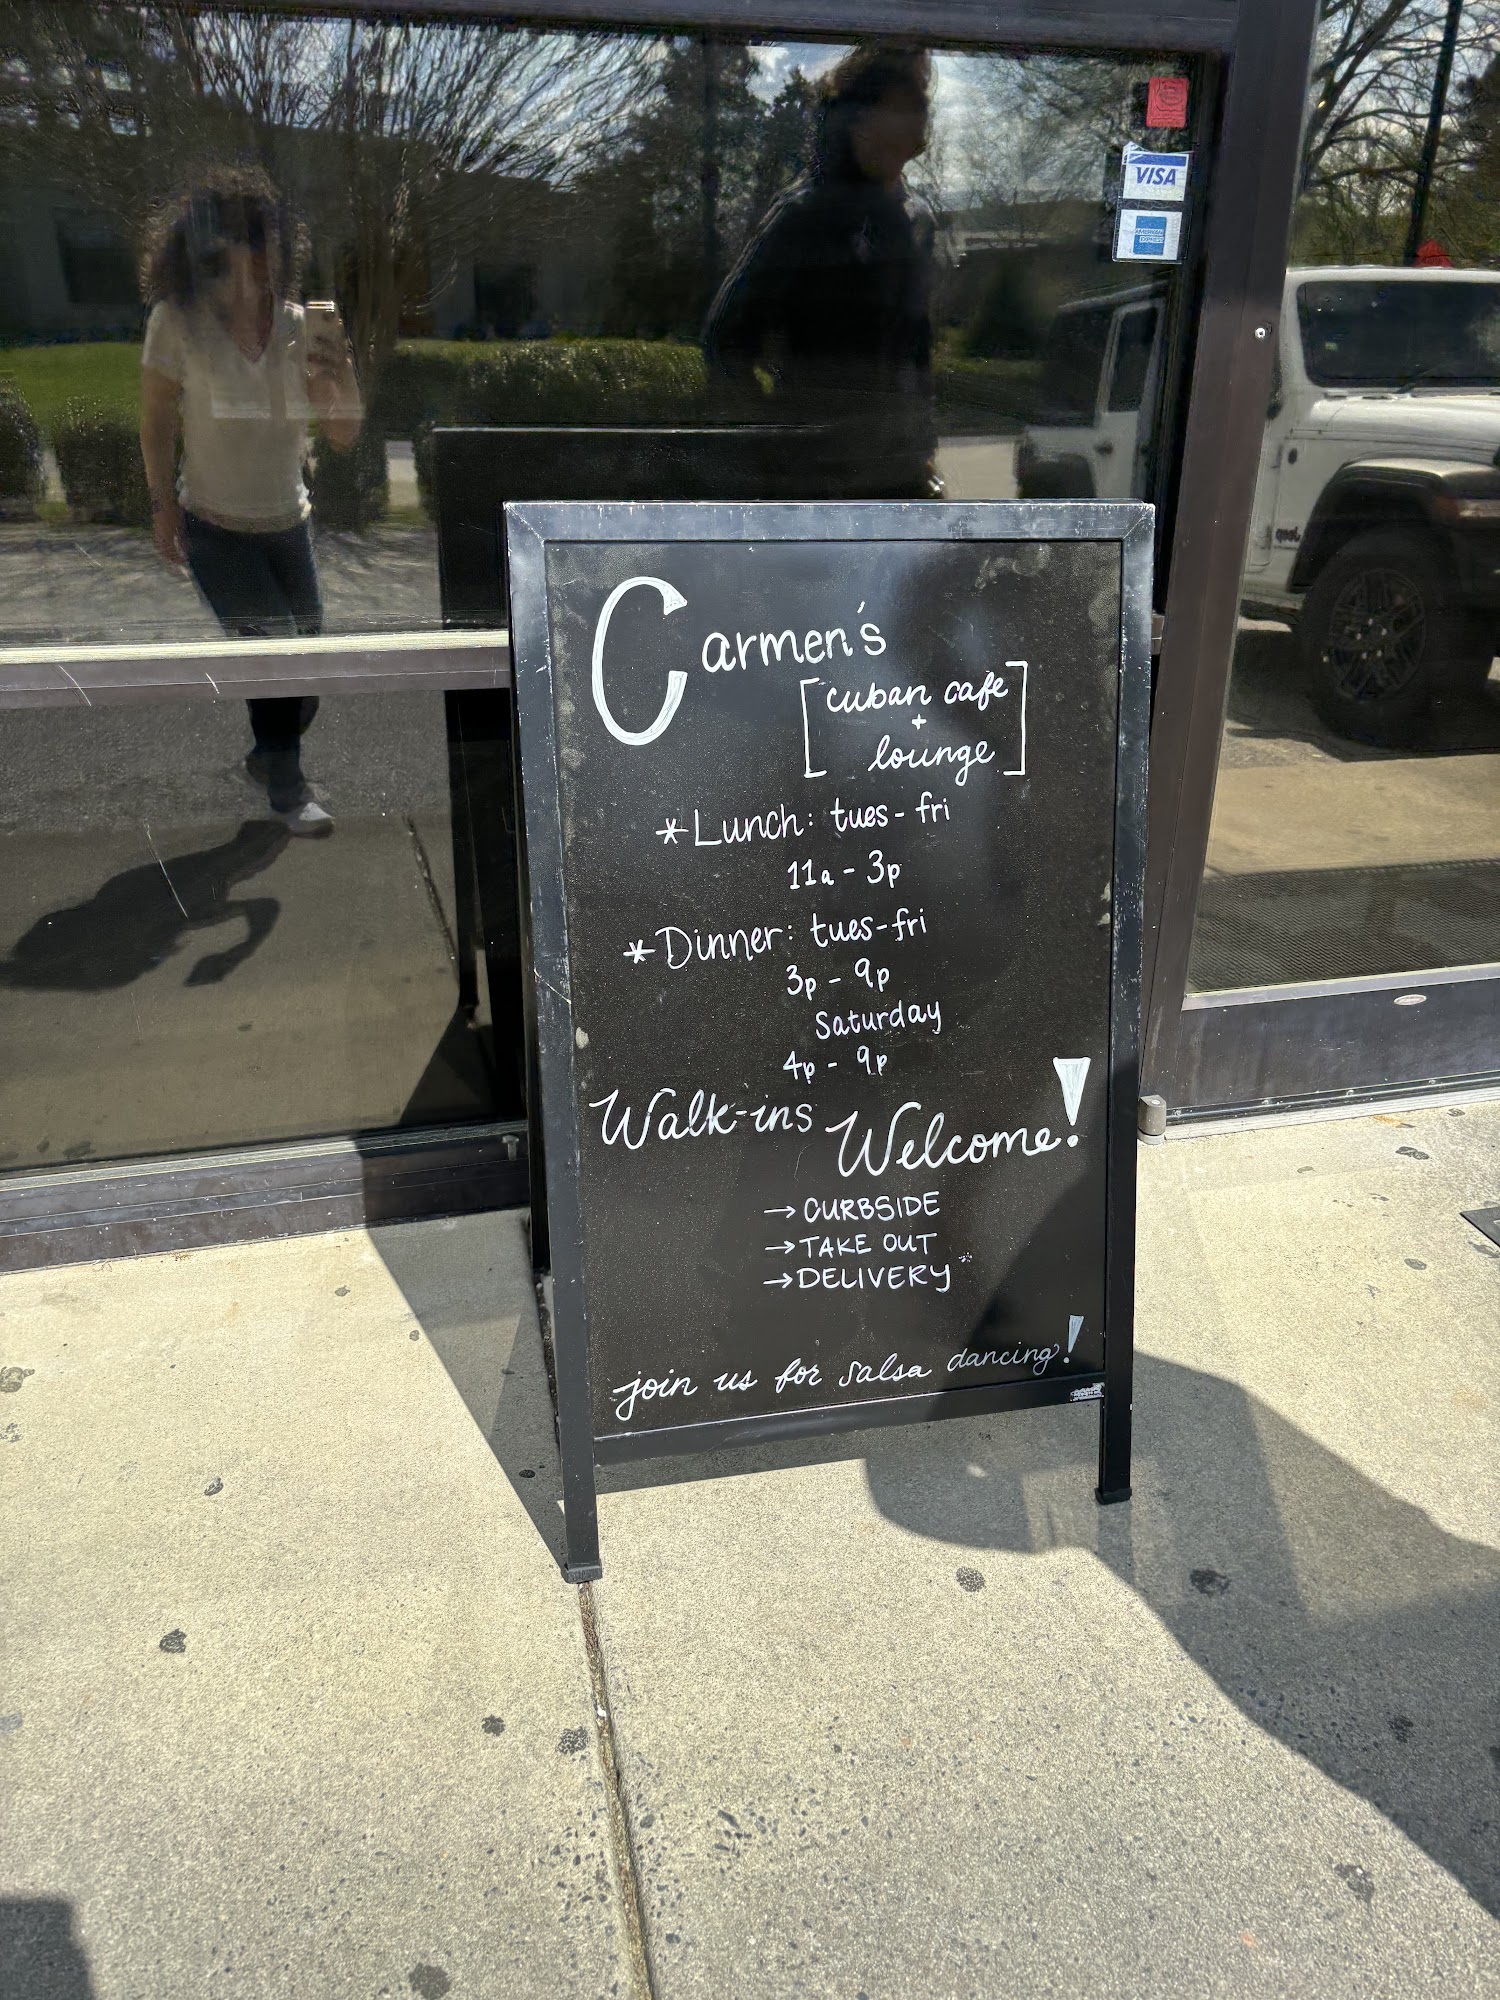 VISA
AMERICAN
EXPRESS
Carmen's
[cuban cafe
+
lounge]
*Lunch: tues - fri
11a - 3p
*Dinner: tues-fri
3p - 9p
Saturday
4p - 9p
Walk-ins Welcome!
→ CURBSIDE
→ TAKE OUT
→ DELIVERY
join us for salsa dancing!